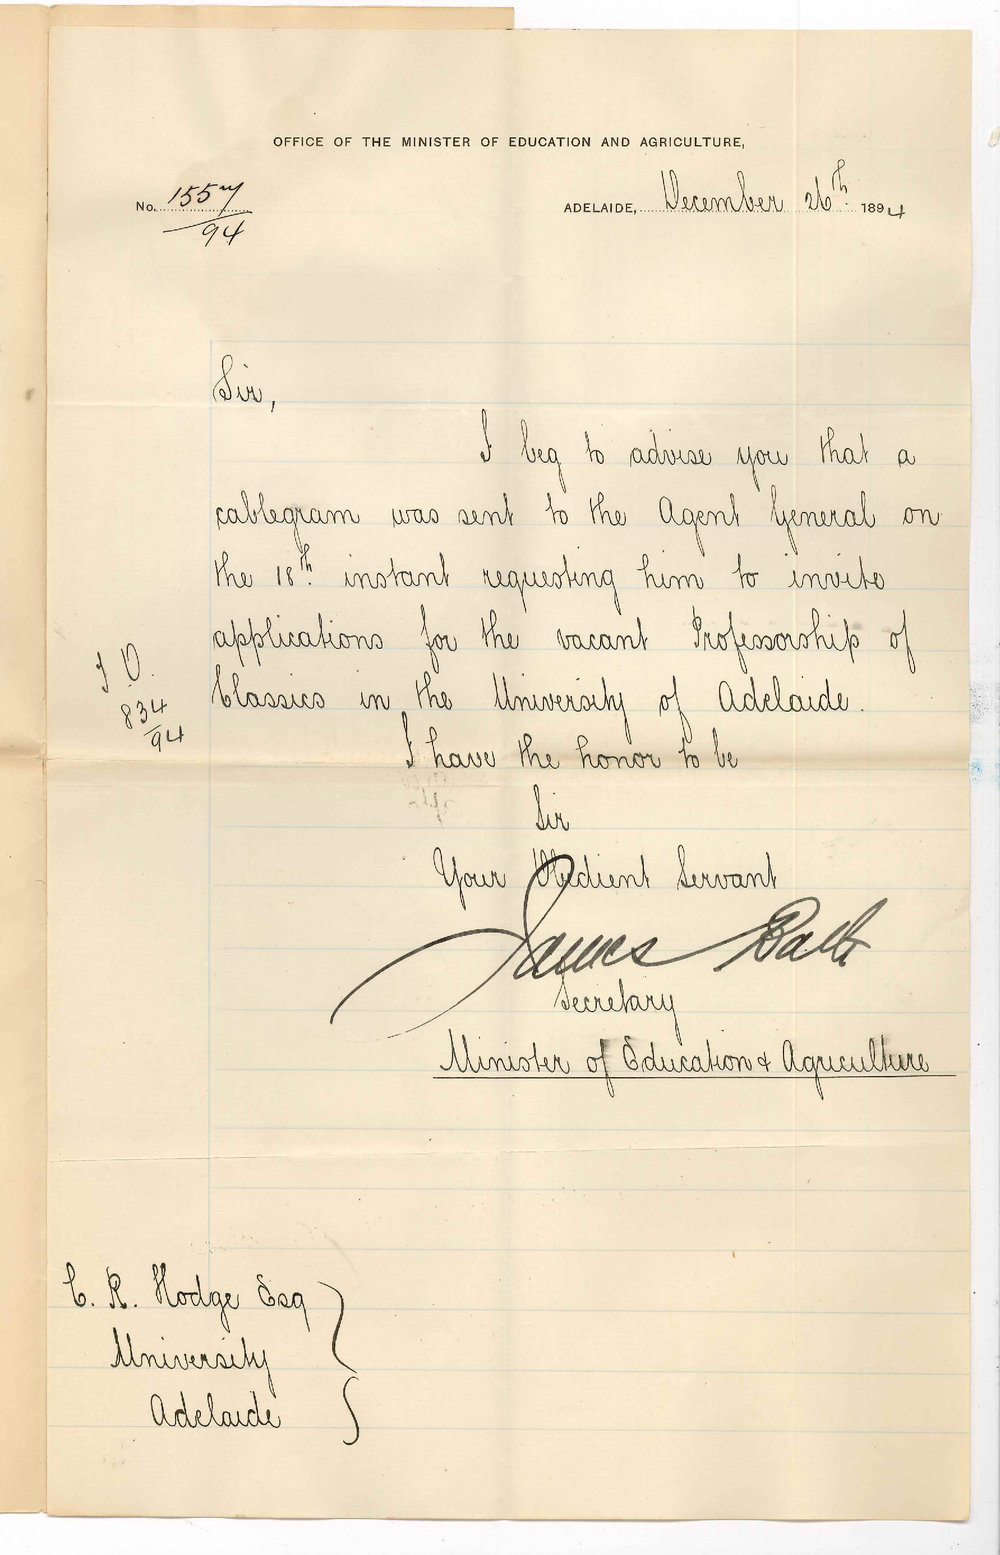 OFFICE OF THE MINISTER OF EDUCATION AND AGRICULTURE,
No. 1557/94
ADELAIDE, December 26th 1894
Sir,
I beg to advise you that a
cablegram was sent to the Agent General on
the 18th instant requesting him to invite
applications for the vacant Professorship of
Classics in the University of Adelaide.
834
94
I have the honor to be
Sir
Your Obedient Servant
James Bath
Secretary
Minister of Education & Agriculture
C. R. Hodge Esq
University
Adelaide